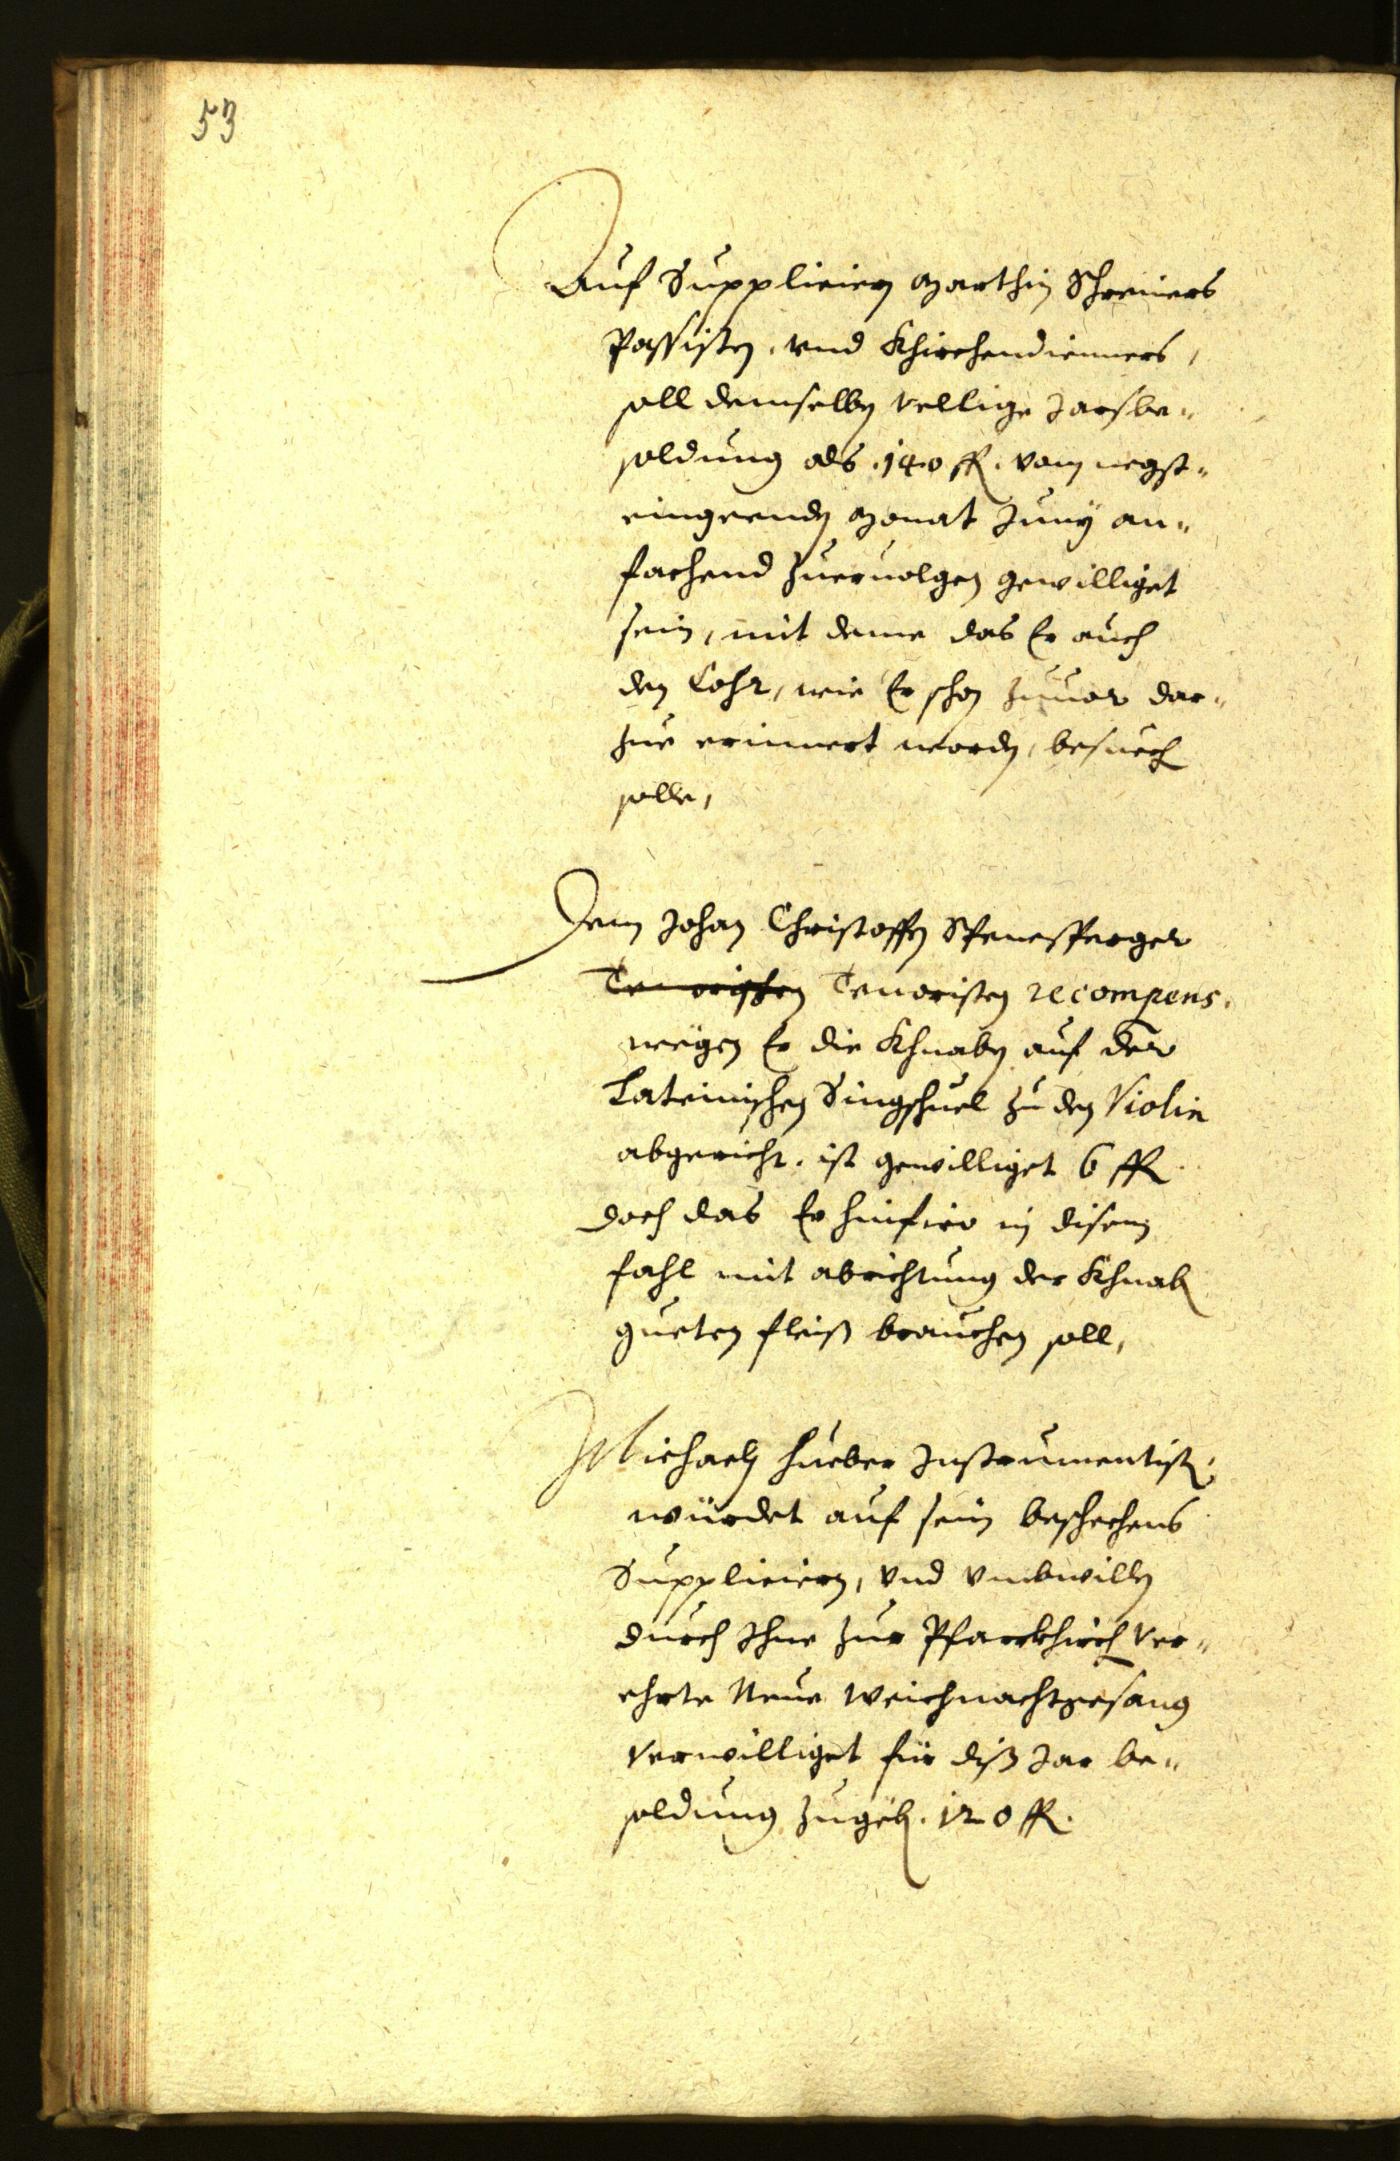 53
Auf Supplicieren Marthin Schreiners
Passisten, vnd Khirchendienners,
soll demselben vellige Jarsbe„
soldung als .140 fl. vom negst„
eingeenden Monat Juny an„
fachend zueruolgen gewilliget
sein, mit deme das Er auch
den Cohr, wie Er schon zuuor dar„
zue erinnert worden, besuech
solle,
Dem Johan Christoffen
Tenoristen Tenoristen recompens.
wegen Er die Khnaben auf der
Lateinischen Singschuel zu den Violin
abgericht. ist gewilliget 6 fl
doch das Er hinfiro in disem
fahl mit abrichtung der Khnaben
gueten fleiß brauchen soll,
Michaeln Hueber Instrumentisten,
würdet auf sein beschechens
Supplicieren, vnd vmbwillen
durch Ihne zur Pfarrkhirchen ver„
ehrte Neue Weichnachtgesang
verwilliget für diß Jar be„
soldung zugeben. 120 fl.